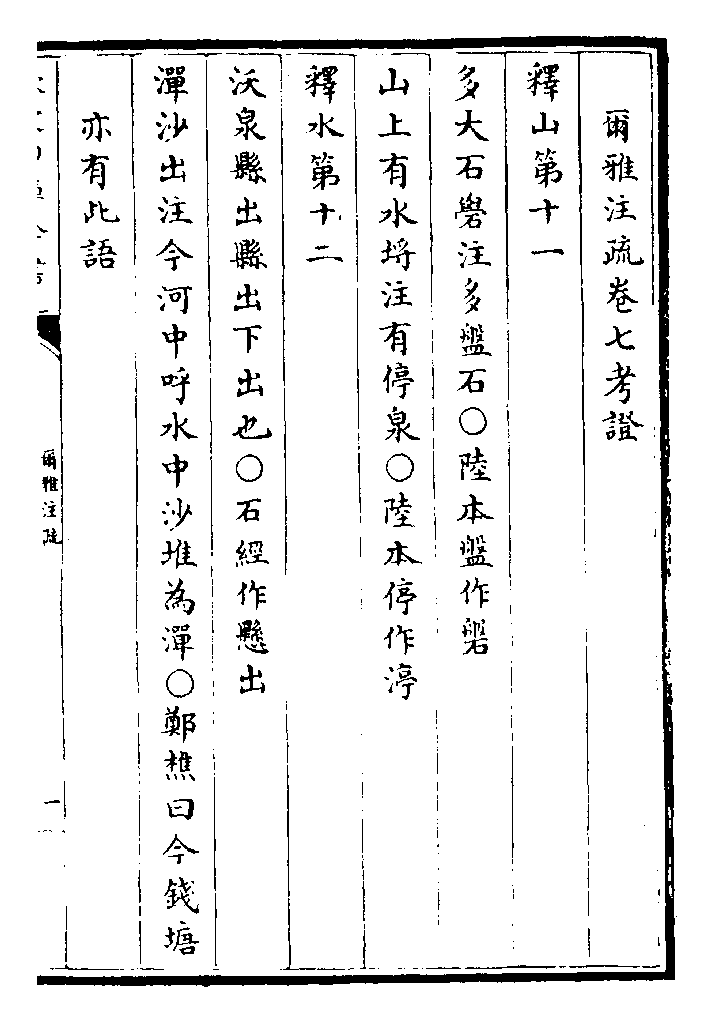 爾雅注疏卷七考證
釋山第十一
多大石礐注多盤石○陸本盤作磐
山上有水埒注有停泉○陸本停作渟
釋水第十二
沃泉縣出縣出下出也○石經作懸出
潬沙出注今河中呼水中沙堆為潬○鄭樵曰今錢塘
亦有此語
爾雅注疏
一